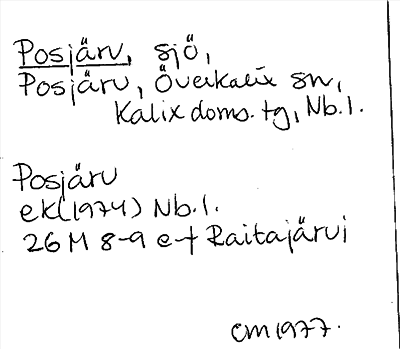 Posjärv, sjö,
Posjärv, Överkalix sn,
Kalix doms. tg, Nb. l.
Posjärv
ek (1974) Nb. l.
26 M 8-9 e-f Raitajärvi
CM 1977.